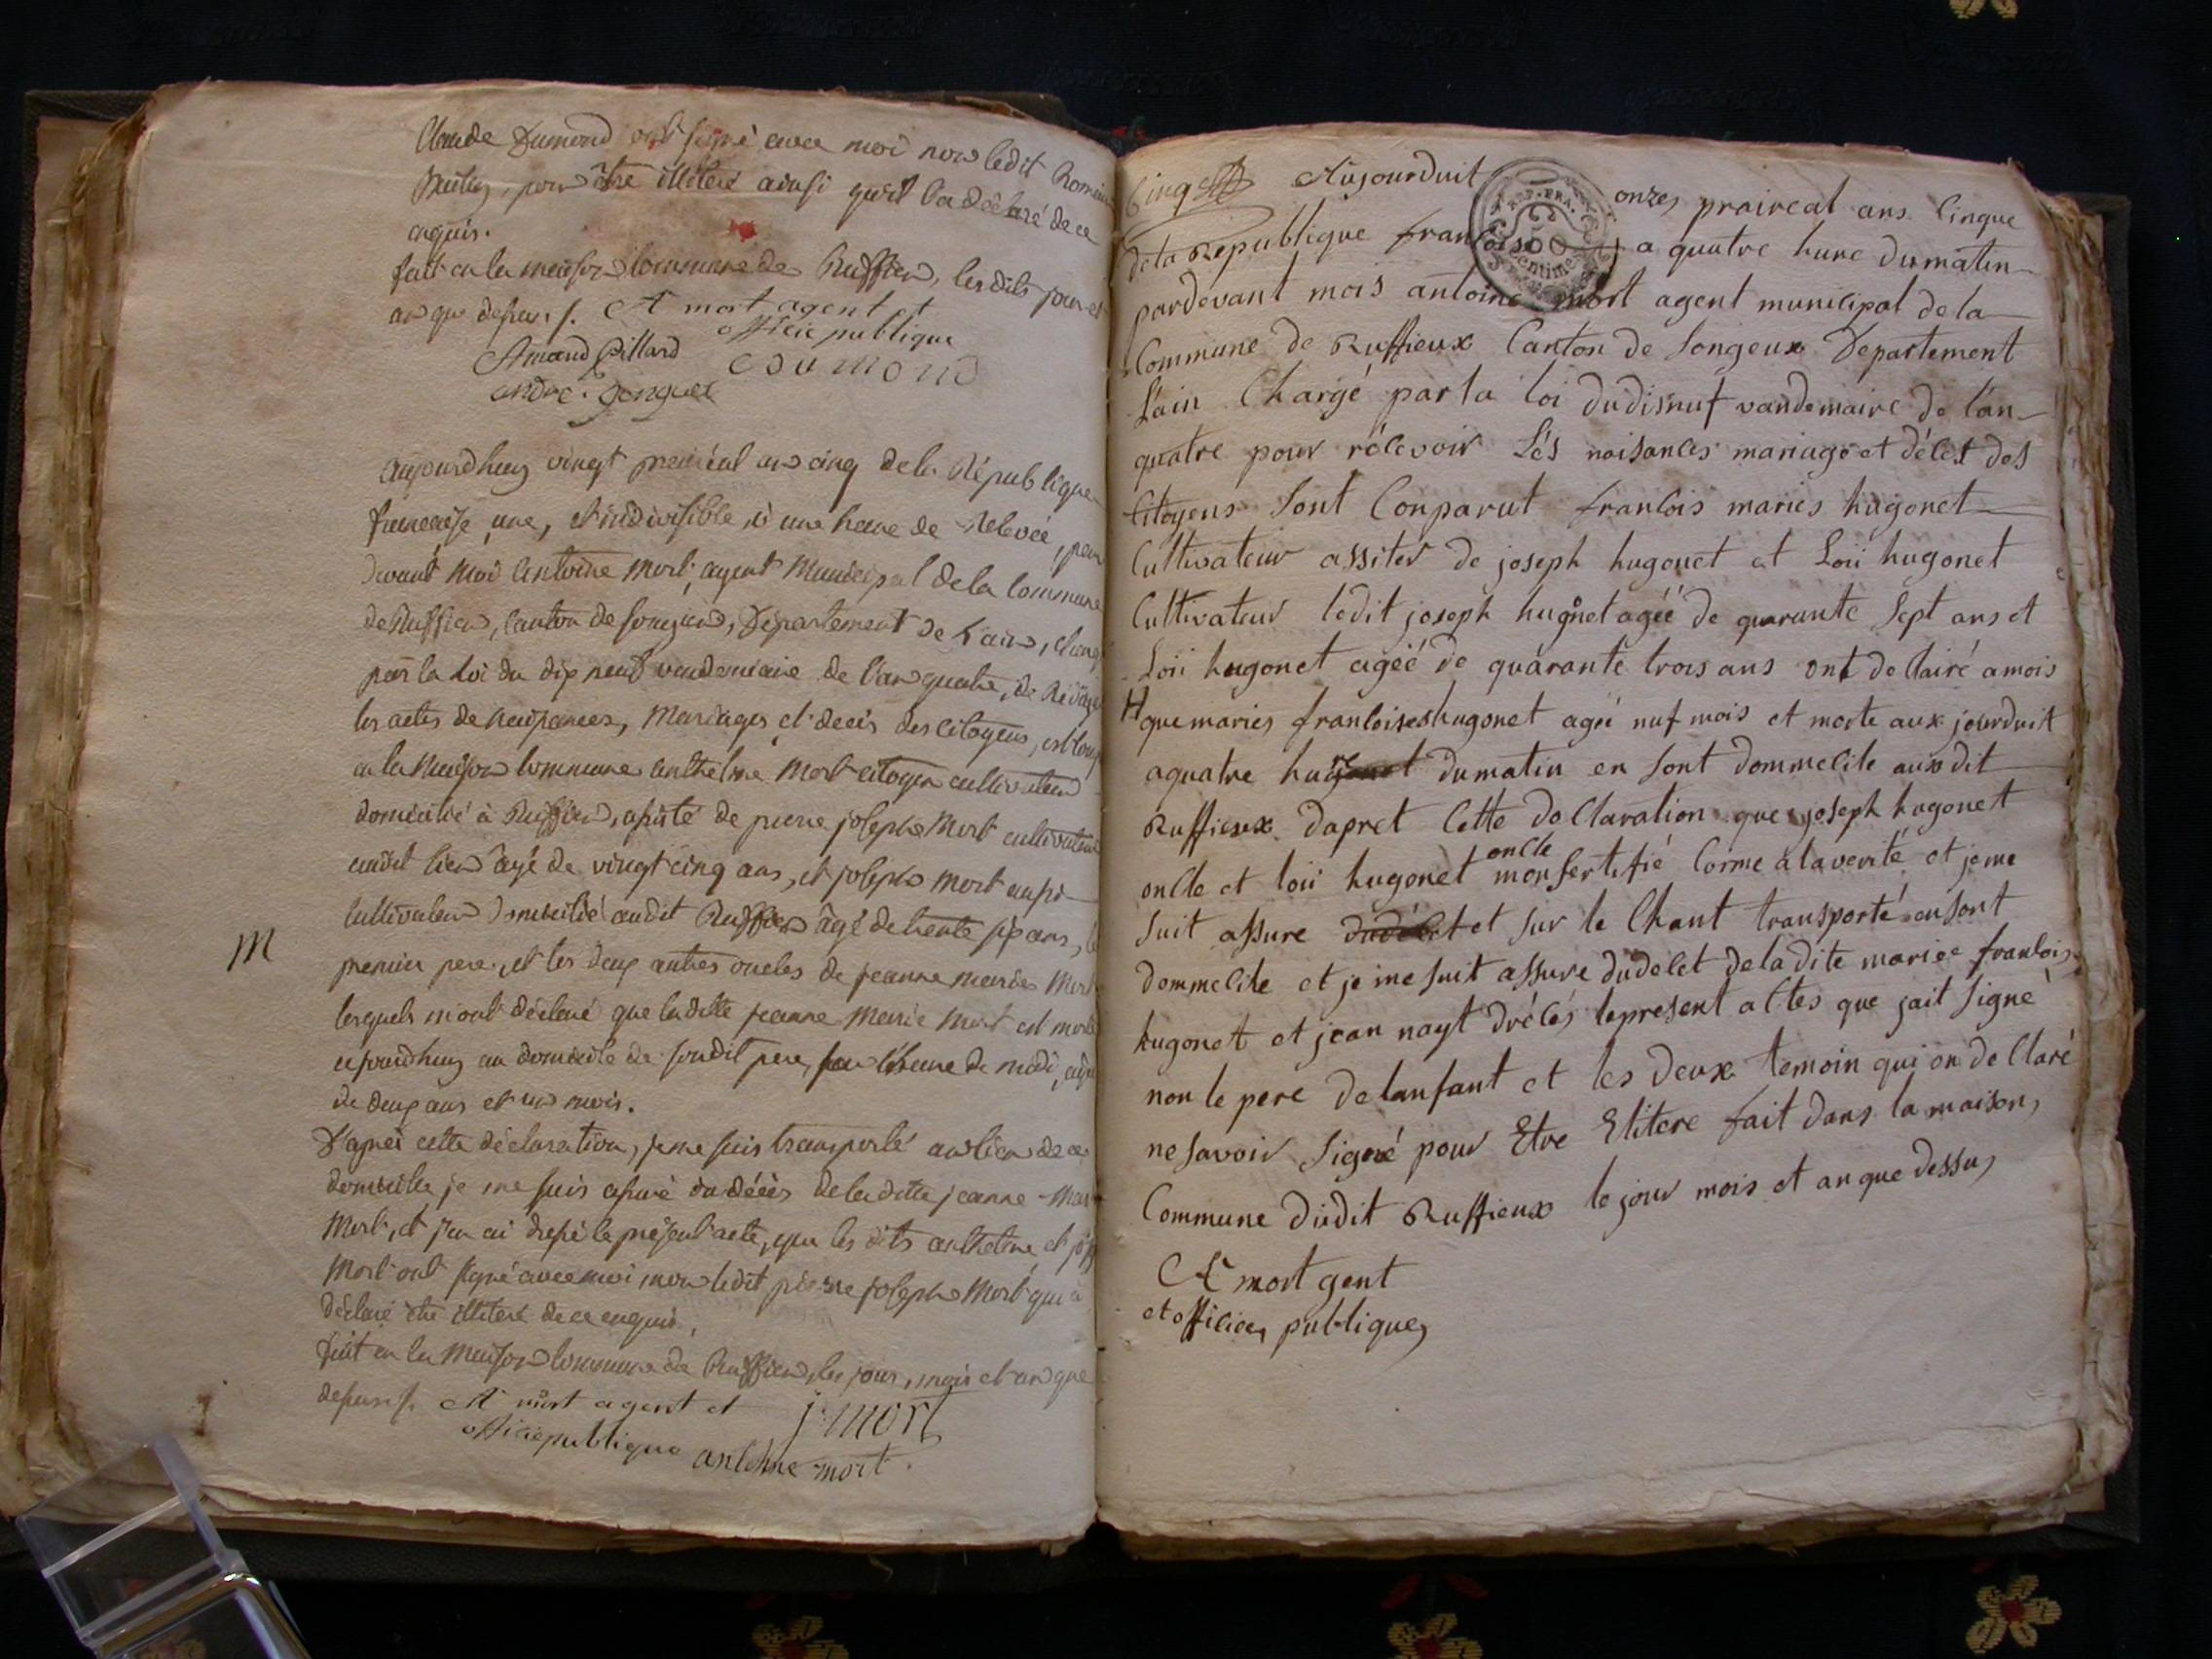 Claude Dumond ont signé avec moi non ledit Romain
pour être illiteré ainsi qu'il l'a déclaré de ce
enquis.
fait en la maison commune de Ruffieu, les dits jour et
an que dessus /. A mort agent et
officie publique
Amand Billard
CDUMOND
andré
aujourdhuy vingt preiréal an cinq de la République
francaise, une, et indivisible, à une heure de relevée, par
devant moi Antoine Mort, agent Municipal de la commune
de Ruffieu, canton de songieu, Département de L'ain, chargé
par la loi du dix neuf vendemiaire de l'an quatre, de Rédiger
les actes de Naissances, Mariages et décès des citoyens, est comp
en la Maison commune anthelme Mort citoyen cultivateur
domicilié à Ruffieu, assisté de pierre joseph Mort cultivateur
audit lieu âgé de vingt cinq ans, et joseph Mort aussi
cultivateur domicilié audit Ruffieu âgé de trente six ans, le
M
premier pere, et les deux autres oncles de jeanne Marie Mort
lesquels m'ont déclaré que ladite jeanne Marie Mort est morte
aujourdhuy au domicile de sondit pere, sur l'heure de midi, agée
de deux ans et un mois.
D'après cette déclaration, je me suis transporté au lieu de ce
domicille je me suis assuré du décès de ladite jeanne Marie
Mort, et j'en ai dressé le présent acte, que les dits anthelme et jph
Mort ont signé avec moi non ledit pierre joseph Mort qui a
déclaré être illiteré de ce enquis.
fait en la Maison commune de Ruffieu, les jour, mois et an que
dessus /. A mort agent et
j. mort
officiepublique
antelme mort.
Cinq Aujourduit onze, praireal ans Cinque
REP. FRA.
50
Centime
de la Republique francoise a quatre hure dumatin
pardevant mois antoine mort agent municipal de la
Commune de Ruffieux Canton de Songeux Departement
Lain Chargé par la loi dudisnuf vandemaire de l'an
quatre pour récevoir Lés naisances mariage et décet des
Citoyens Sont Conparut francois maries hugonet
Cultivateur assiter de joseph hugonet et Loii hugonet
Cultivateur ledit joseph hugonet agéé de quarante Sept ans et
Loii hugonet agéé de quarante trois ans ont declairé amois
H
que maries francoises hugonet agéé nuf mois et morte aux jourduit
aquatre hure dumatin en Sont dommecile auxdit
Ruffieux dapret Cette declaration que joseph hugonet
oncle
oncle et loii hugonet mon sertifié Corme a la verité et je me
suit assure dudécet et sur le Chant transporté ausont
dommecile et je me suit assure dudecet deladite mariee francois
hugonet et jean nayt dréces lepresent actes que jait Signé
non le pere delanfant et les deux temoin qui on declaré
ne savoir Signé pour Etre Elitere fait dans la maison,
Commune dudit Ruffieux le jour mois et an que dessu,
A mort gent
et officier, publique,